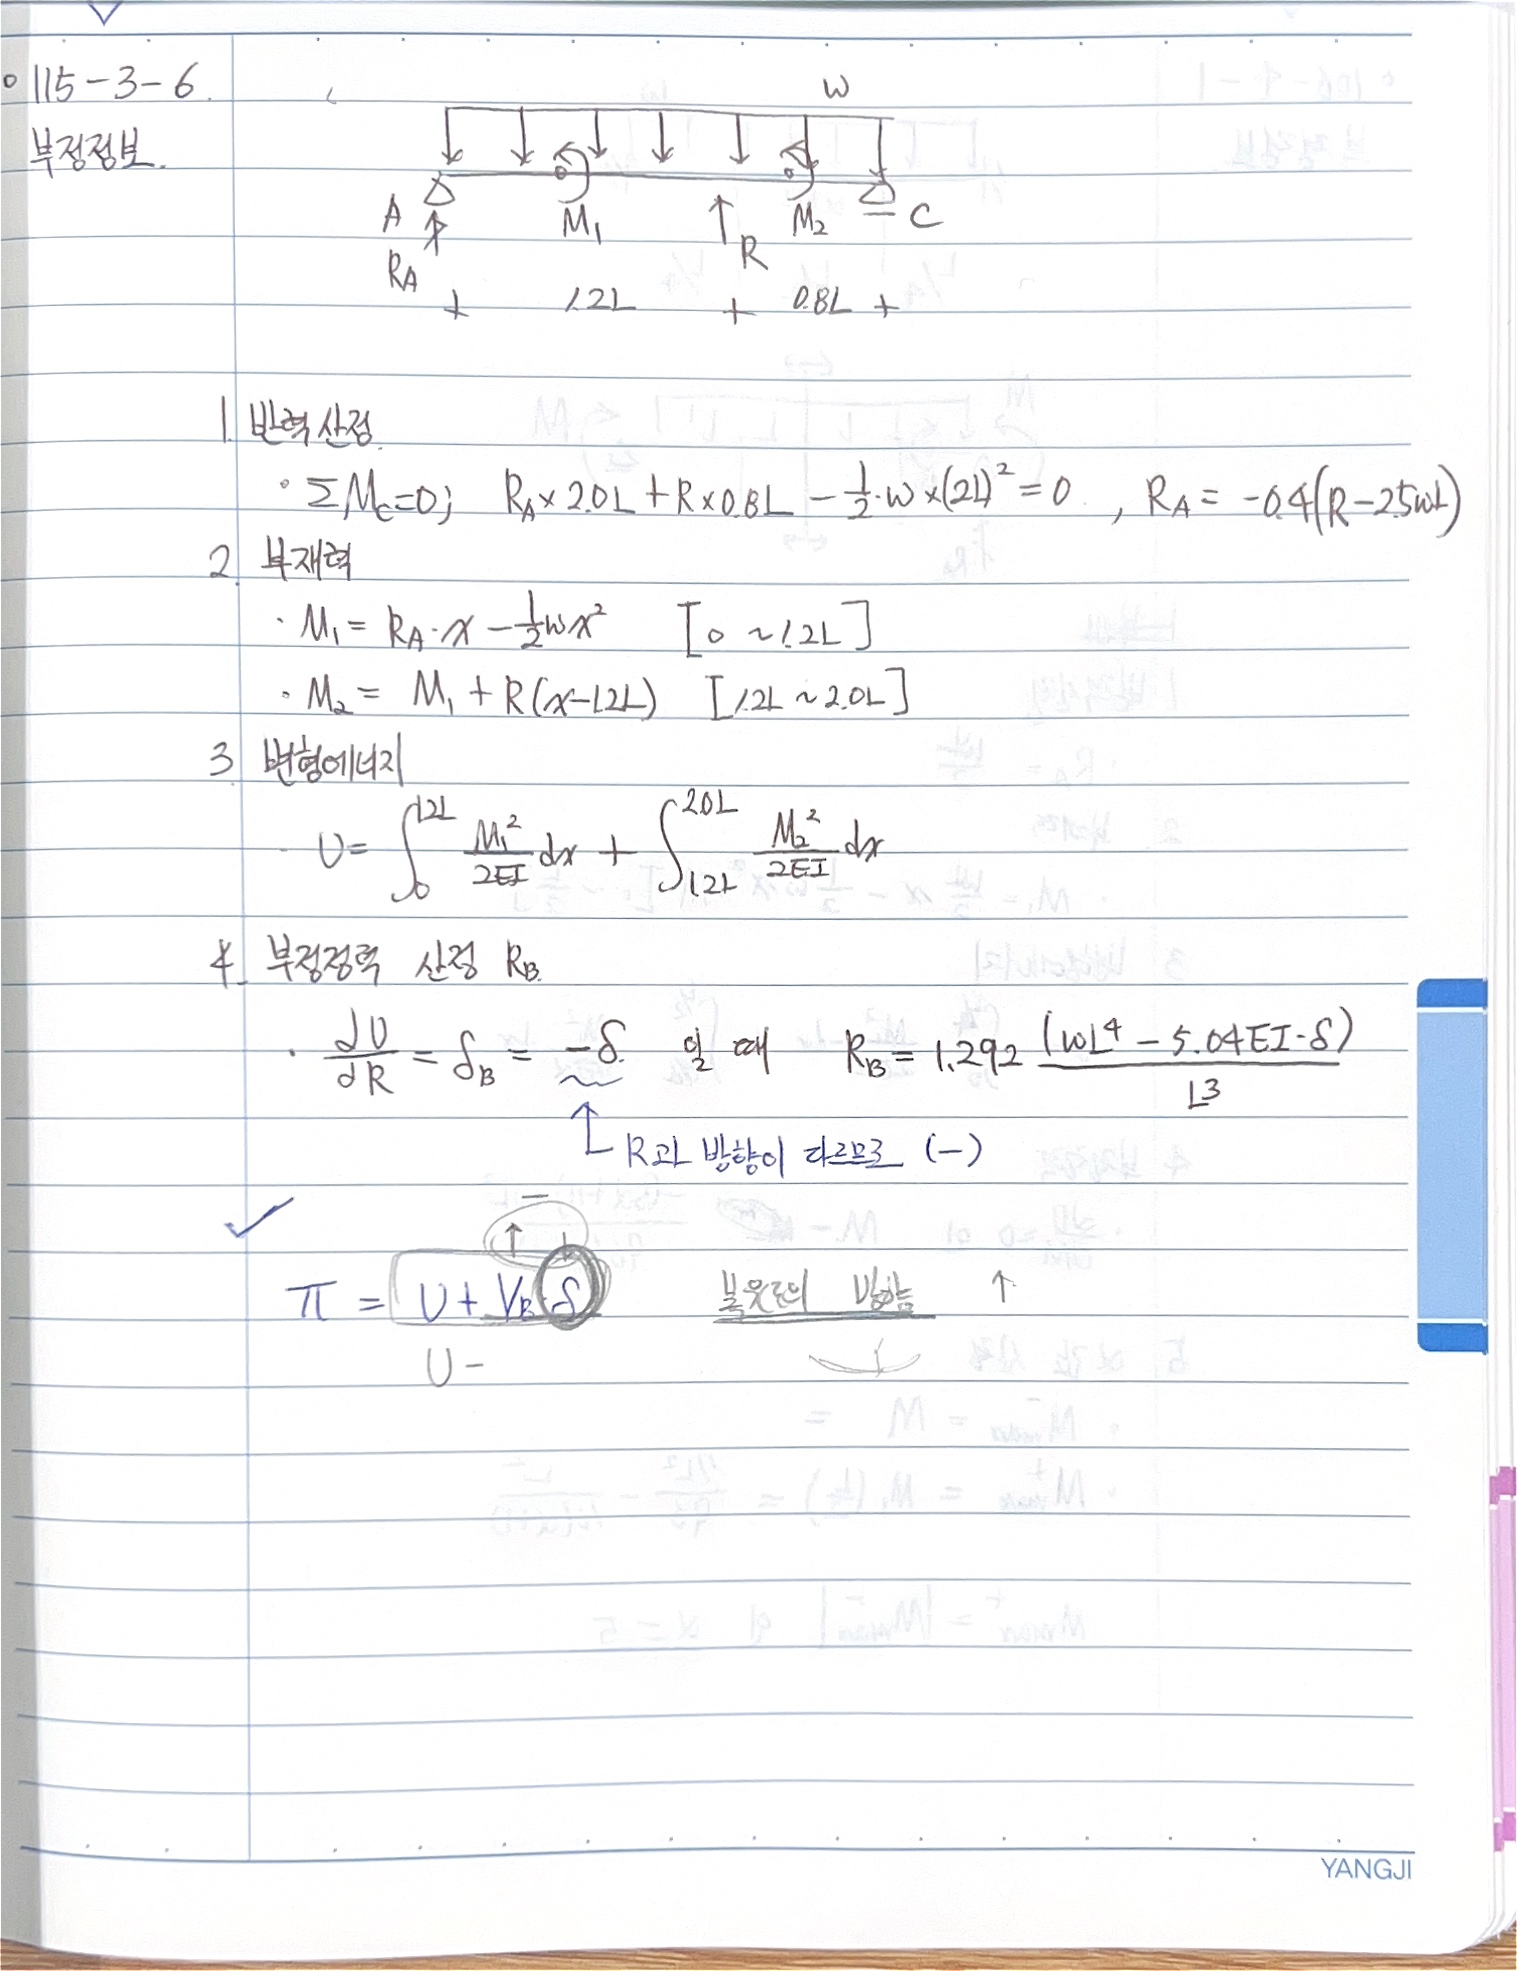 115-3-6.
부정정보.
w
A
M₁
M₂
C
R_A
R
1.2L
0.8L
1. 반력산정.
· ΣM_C=0; R_A×2.0L+R×0.8L-½·w×(2L)²=0, R_A=-0.4(R-2.5wL)
2. 부재력
· M₁=R_A·x-½wx² [0~1.2L]
· M₂=M₁+R(x-1.2L) [1.2L~2.0L]
3. 변형에너지
· U=∫₀^1.2L M₁²/2EI dx+∫_1.2L^2.0L M₂²/2EI dx
4. 부정정력 산정 R_B.
· ∂U/∂R=δ_B=-δ. 일 때 R_B=1.292 (wL⁴-5.04EI·δ)/L³
↑ R과 방향이 다르므로 (-)
↑ - ↓
π=U+V_B·δ 방향 ↑
U-
YANGJI